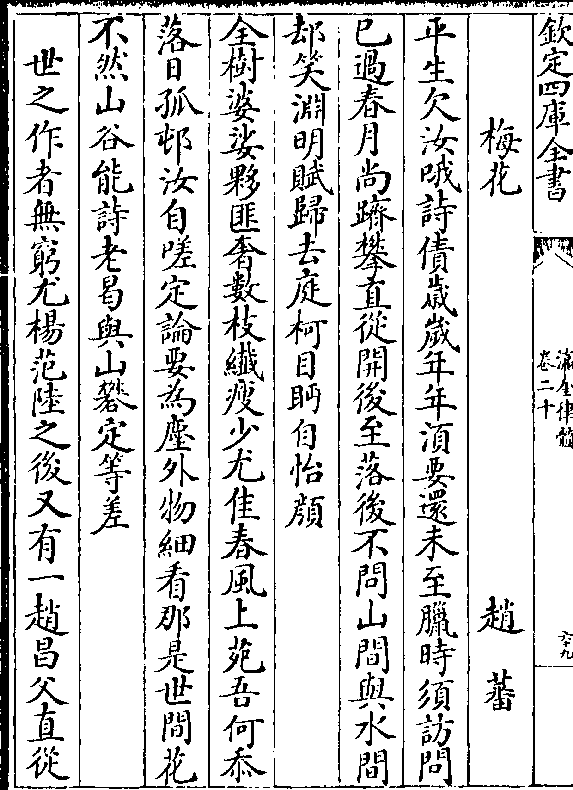 欽定四庫全書
瀛奎律髓
卷二十
六十九
梅花
趙蕃
平生欠汝哦詩債歳歳年年湏要還未至臘時須訪問
已過春月尚躋攀直從開後至落後不問山間與水間
却笑淵明賦歸去庭柯目眄自怡顔
全樹婆娑夥匪奢數枝纎瘦少尤佳春風上苑吾何忝
落日孤邨汝自嗟定論要為塵外物細看那是世間花
不然山谷能詩老曷與山礬定等差
世之作者無窮尤楊范陸之後又有一趙昌父直從